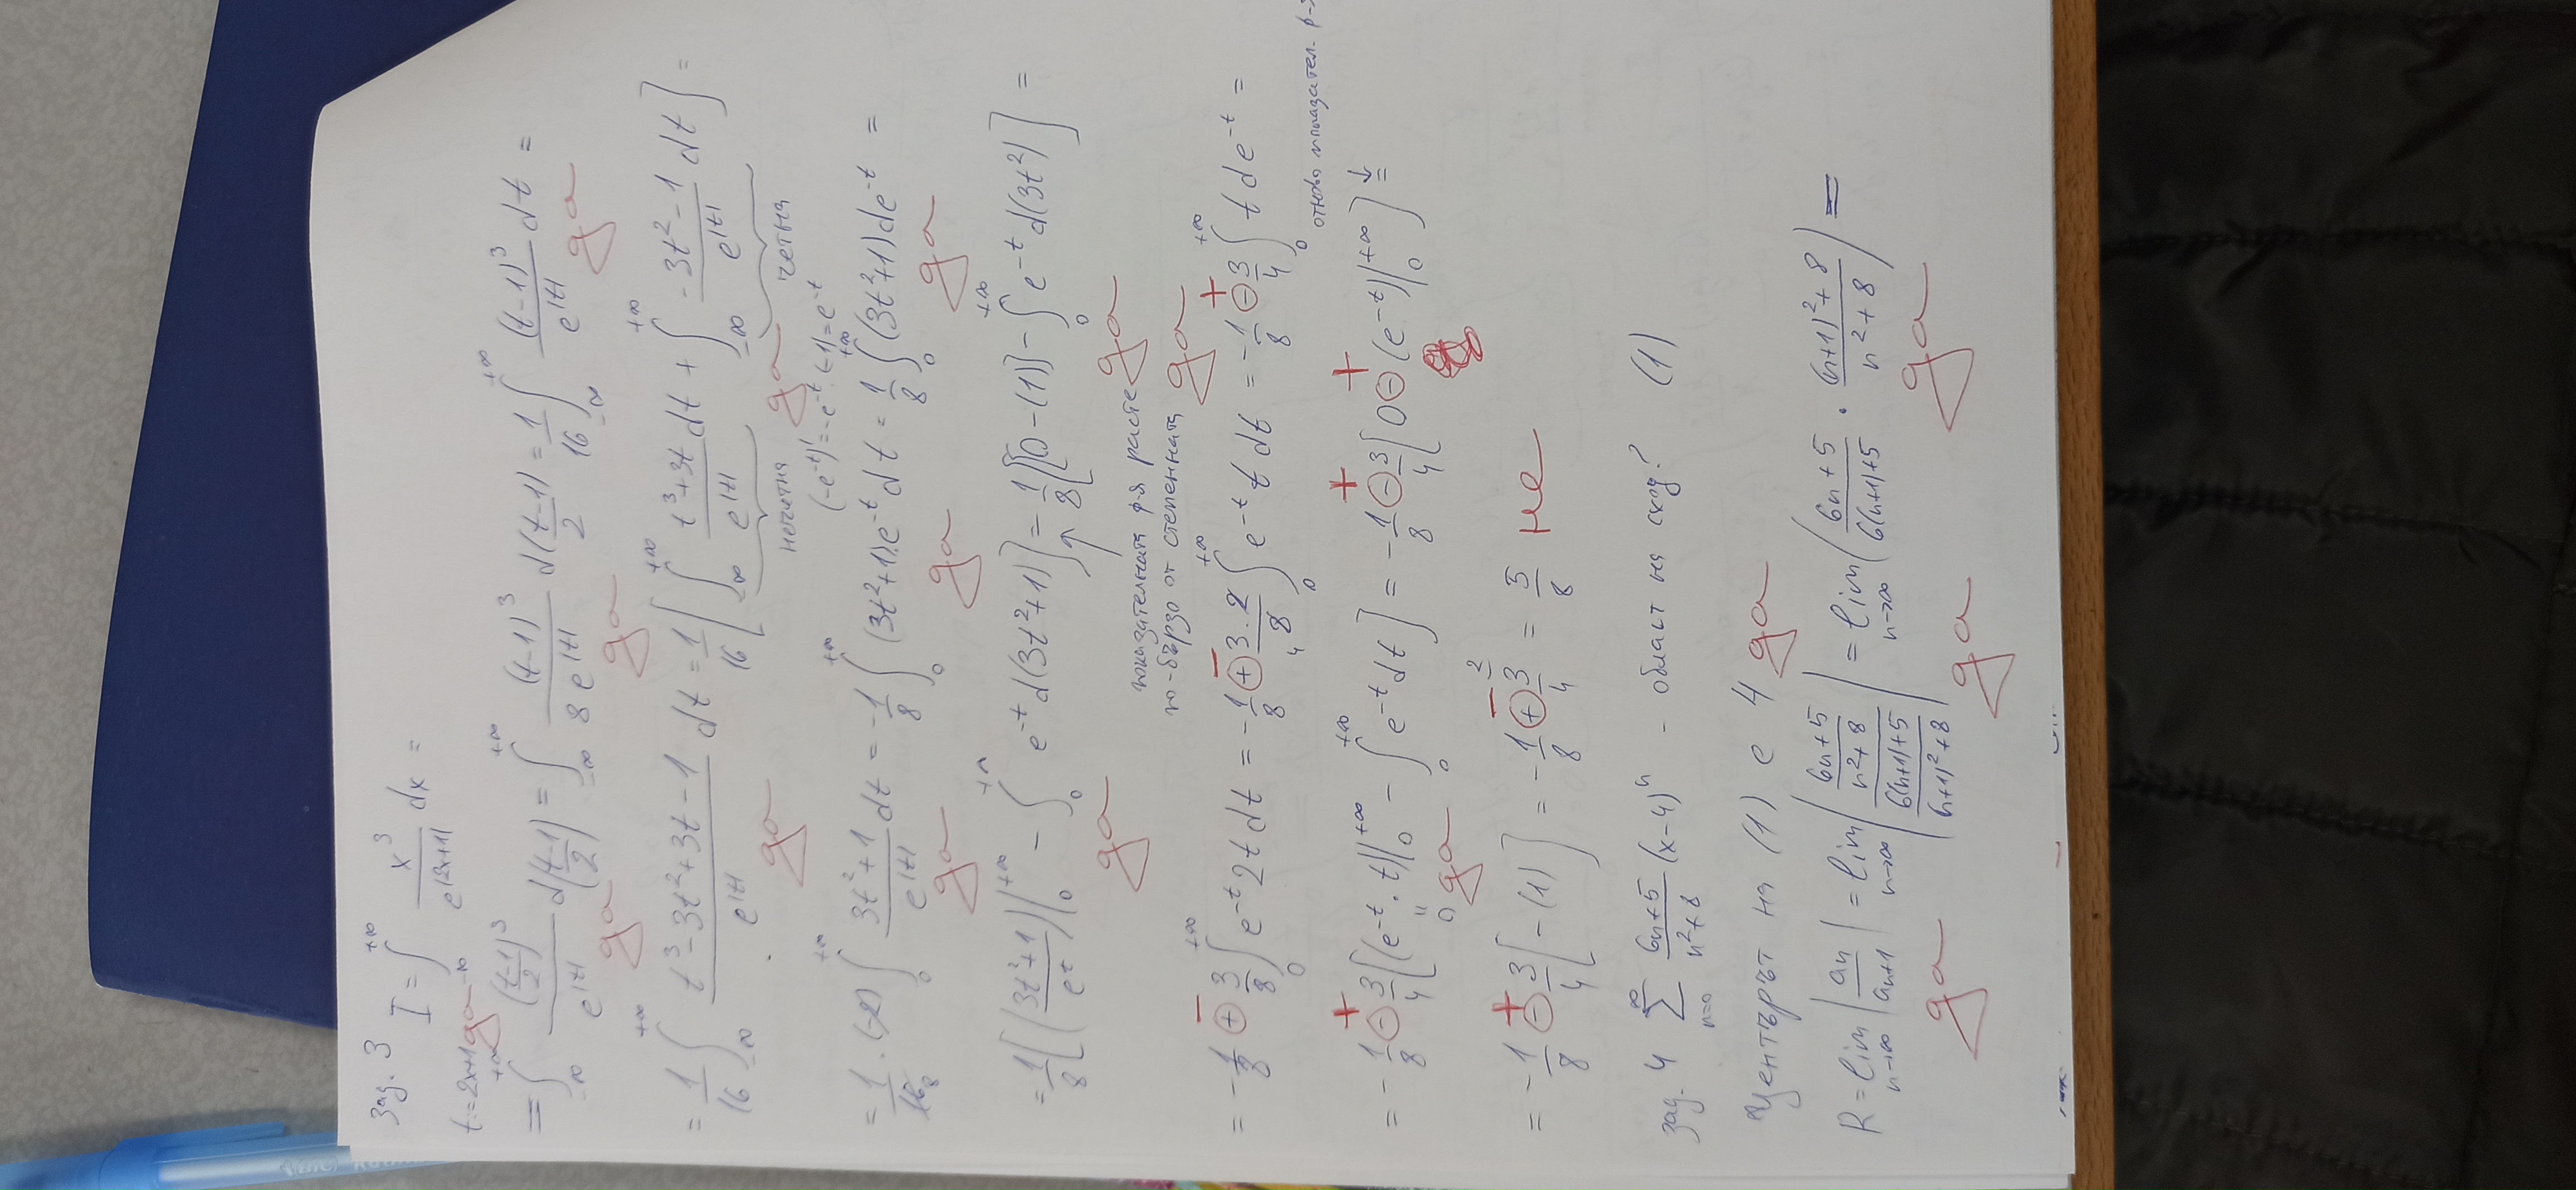 зад. 3 I = ∫_{-∞}^{+∞} x³/e^{|2x+1|} dx =
t:=2x+1 да
= ∫_{-∞}^{+∞} ((t-1)/2)³/e^{|t|} d((t-1)/2) = ∫_{-∞}^{+∞} (t-1)³/(8e^{|t|}) d(t-1)/2 = 1/16 ∫_{-∞}^{+∞} (t-1)³/e^{|t|} dt =
да да да
= 1/16 ∫_{-∞}^{+∞} (t³-3t²+3t-1)/e^{|t|} dt = 1/16 [∫_{-∞}^{+∞} (t³+3t)/e^{|t|} dt + ∫_{-∞}^{+∞} (-3t²-1)/e^{|t|} dt] =
да нечетна да четна
(-e^{-t})' = -e^{-t}.(-1) = e^{-t}
= 1/16 8 . (-2) ∫_{0}^{+∞} (3t²+1)/e^{|t|} dt = -1/8 ∫_{0}^{+∞} (3t²+1).e^{-t} dt = 1/8 ∫_{0}^{+∞} (3t²+1) de^{-t} =
да да да
= 1/8 [((3t²+1)/e^t)|_{0}^{+∞} - ∫_{0}^{+∞} e^{-t} d(3t²+1)] = 1/8 [[0-(1)] - ∫_{0}^{+∞} e^{-t} d(3t²)] =
да ↑ да
показателната ф-я расте
по-бързо от степенната да
− − +
= -1/8 ⊕ 3/8 ∫_{0}^{+∞} e^{-t} 2t dt = -1/8 ⊕ 3.2/8 4 ∫_{0}^{+∞} e^{-t} t dt = -1/8 ⊖ 3/4 ∫_{0}^{+∞} t de^{-t} =
отново показател. ф-я
+ + +
= -1/8 ⊖ 3/4 [(e^{-t}.t)|_{0}^{+∞} - ∫_{0}^{+∞} e^{-t} dt] = -1/8 ⊖ 3/4 [0 ⊖ (e^{-t})|_{0}^{+∞}] ↓ =
" 0 да
+ − 2
= -1/8 ⊖ 3/4 [-(1)] = -1/8 ⊕ 3/4 = 5/8 не
зад. 4 ∑_{n=0}^{∞} (6n+5)/(n²+8) (x-4)^n - област на сход? (1)
Центърът на (1) е 4 да
R = lim_{n→∞} |a_n/a_{n+1}| = lim_{n→∞} |((6n+5)/(n²+8))/((6(n+1)+5)/((n+1)²+8))| = lim_{n→∞} ((6n+5)/(6(n+1)+5) . ((n+1)²+8)/(n²+8)) =
да да да